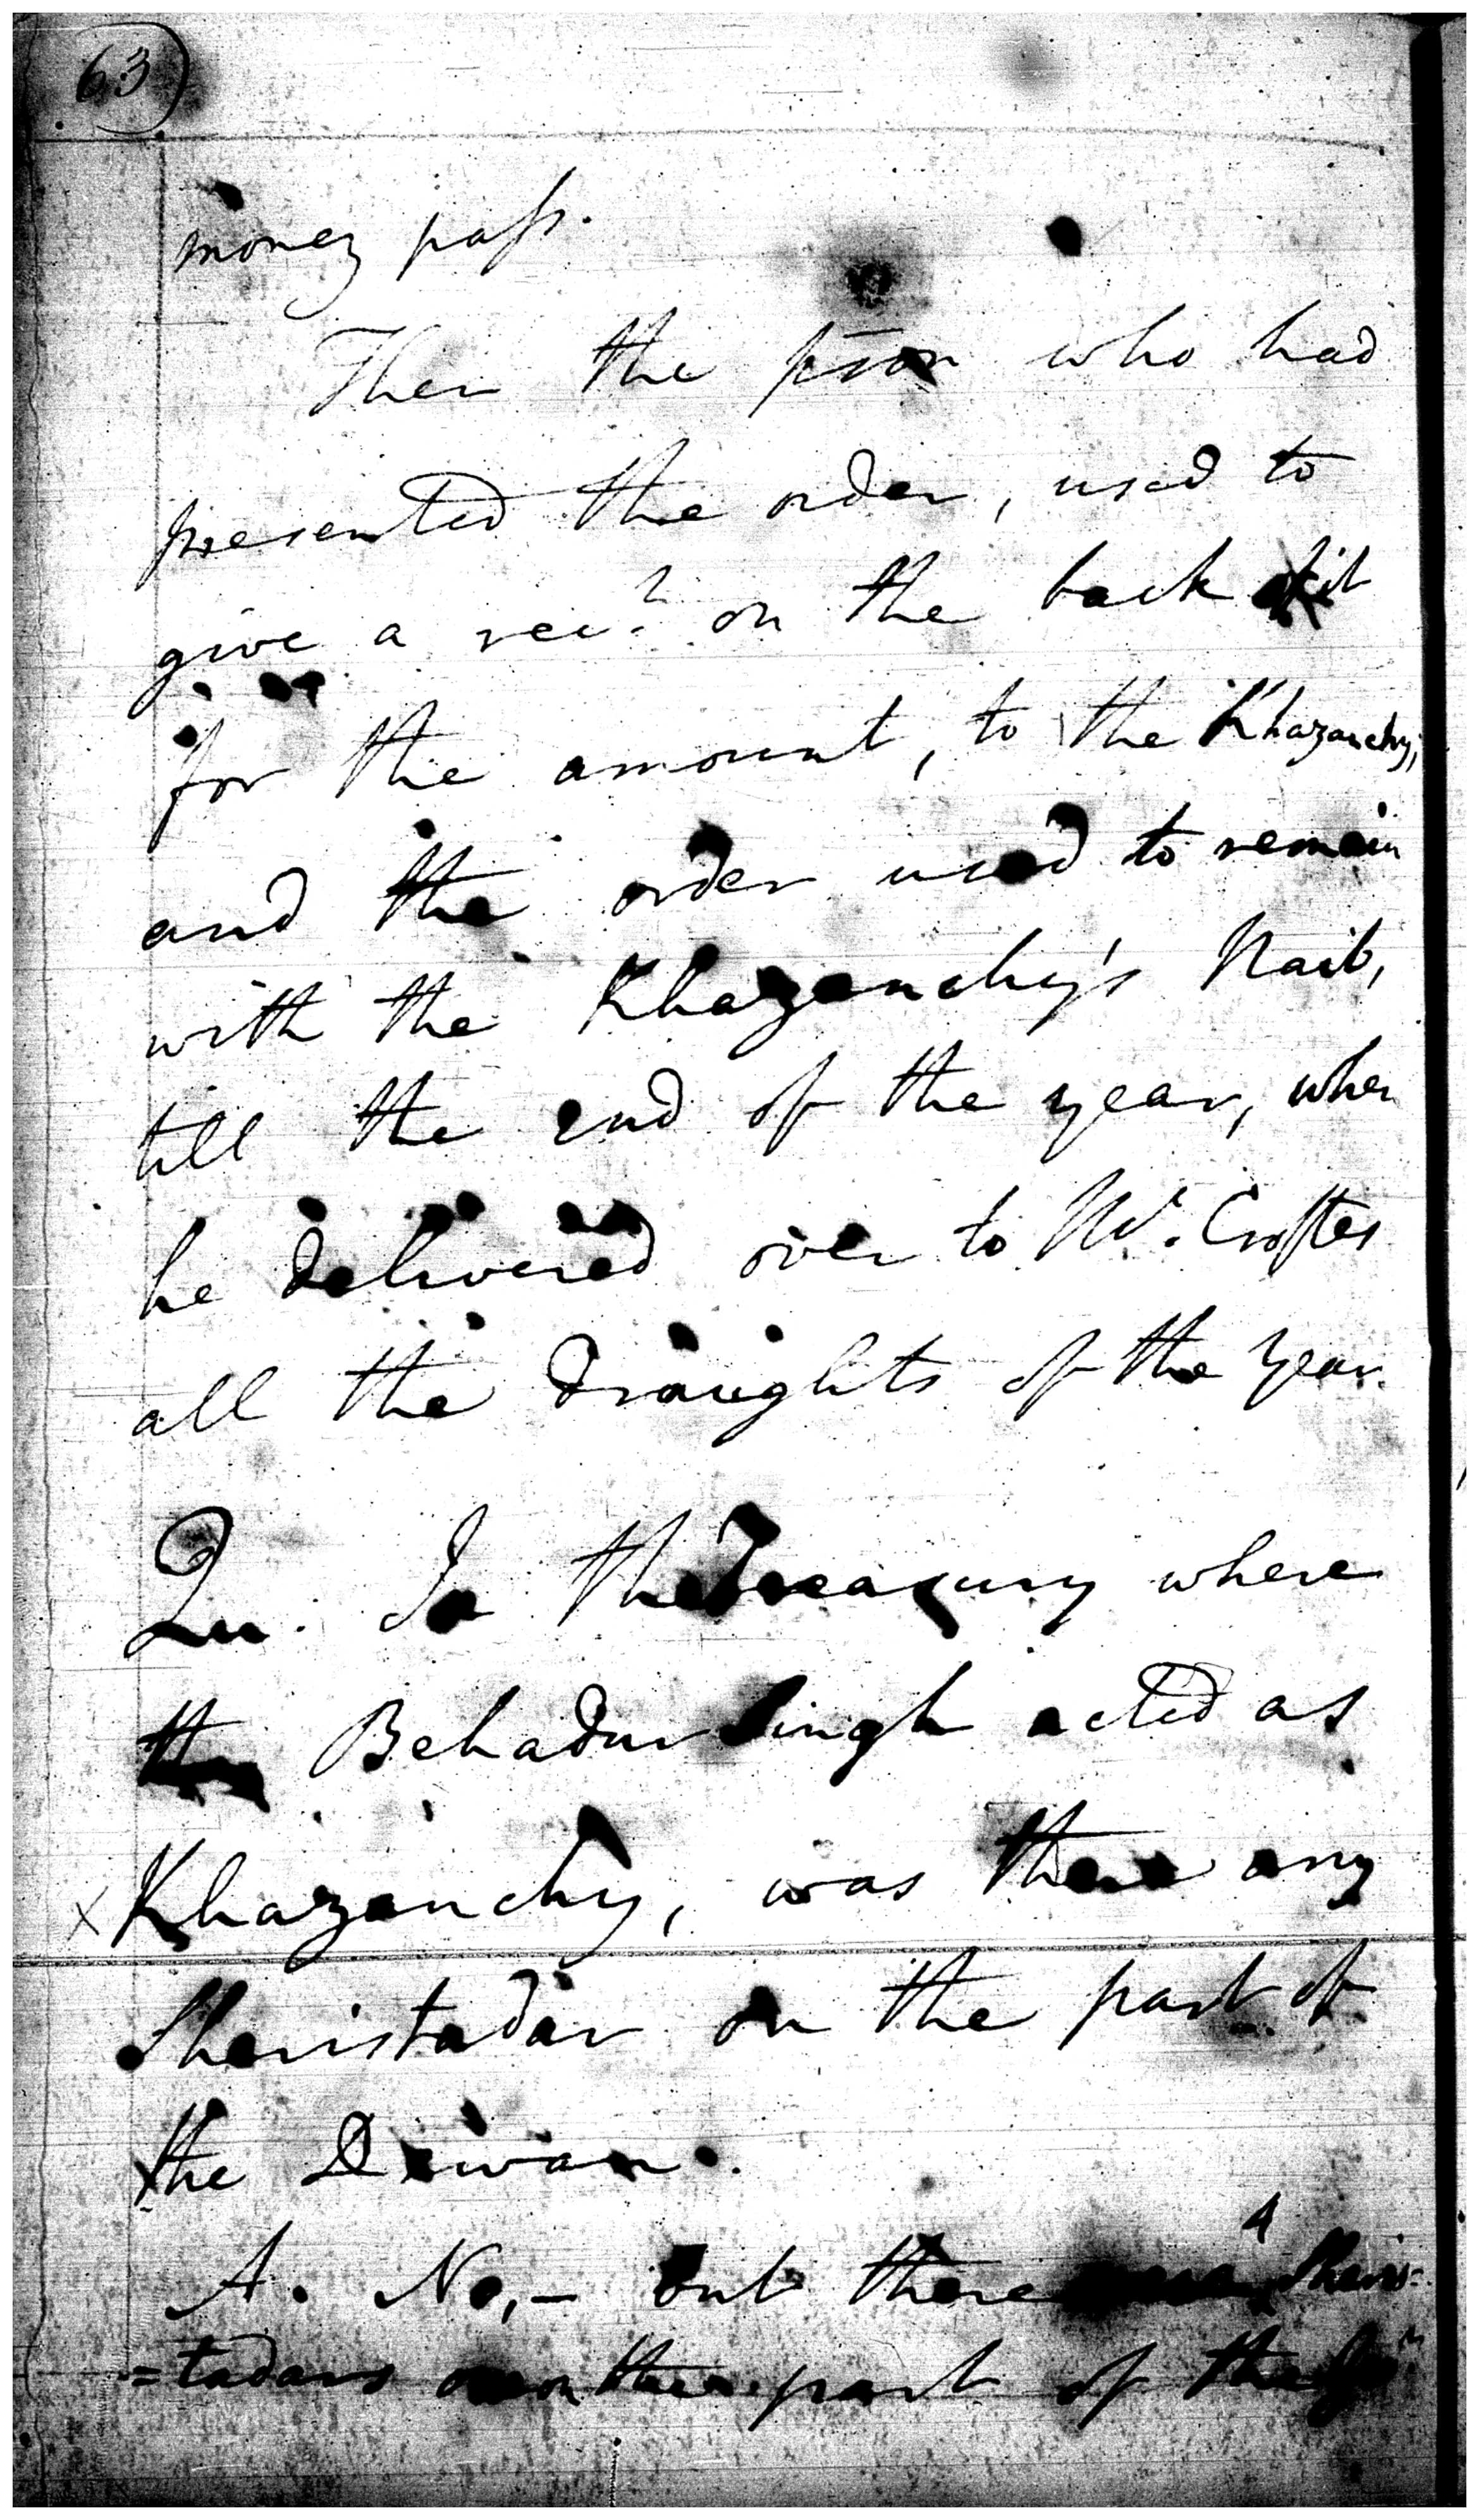 63
money pass.
Then the pson who had
presented the order, used to
give a rect. on the back of it
for the amount, to the Khazanchy,
and the order used to remain
with the Khazanchy's Naib,
till the end of the year, when
he delivered over to Mr. Croftes
all the draughts of the year.
Qu. In the Treasury where
Behadur Singh acted as
Khazanchy, was there any
Sheristadar on the part of
the Dewan.
A. No,- but there were 4 Sheris=
=tadars on the part of the